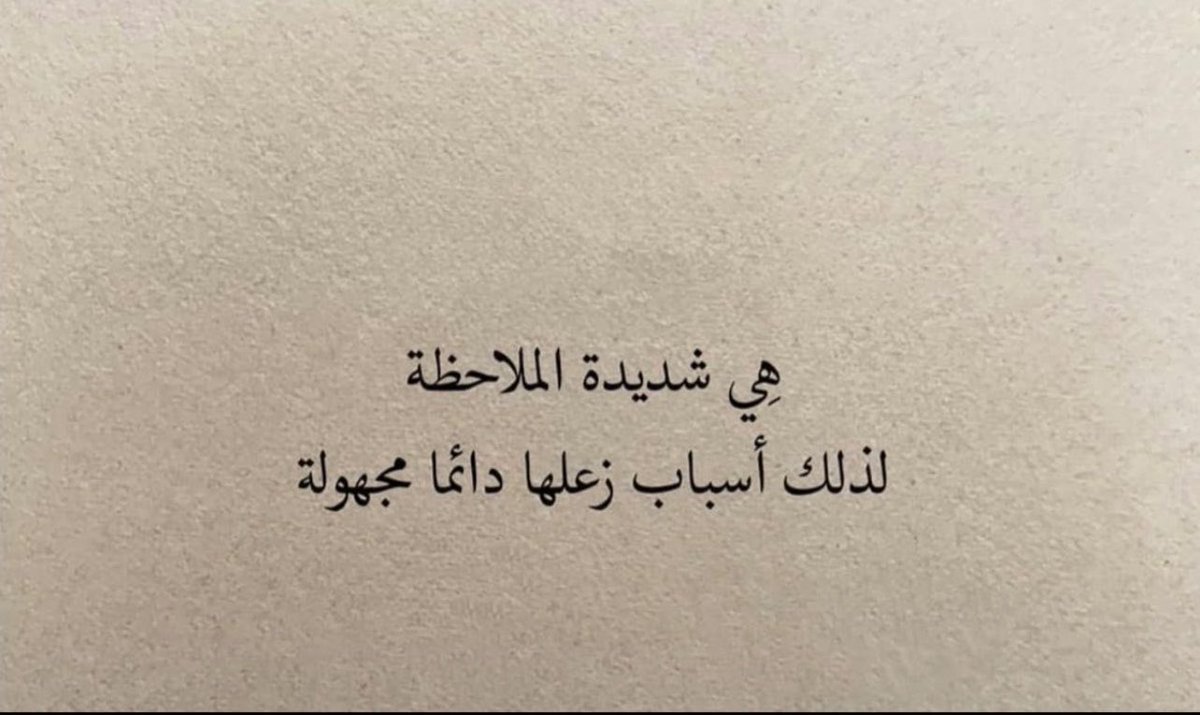 هِي شديدة الملاحظة
لذلك أسباب زعلها دائما مجهولة